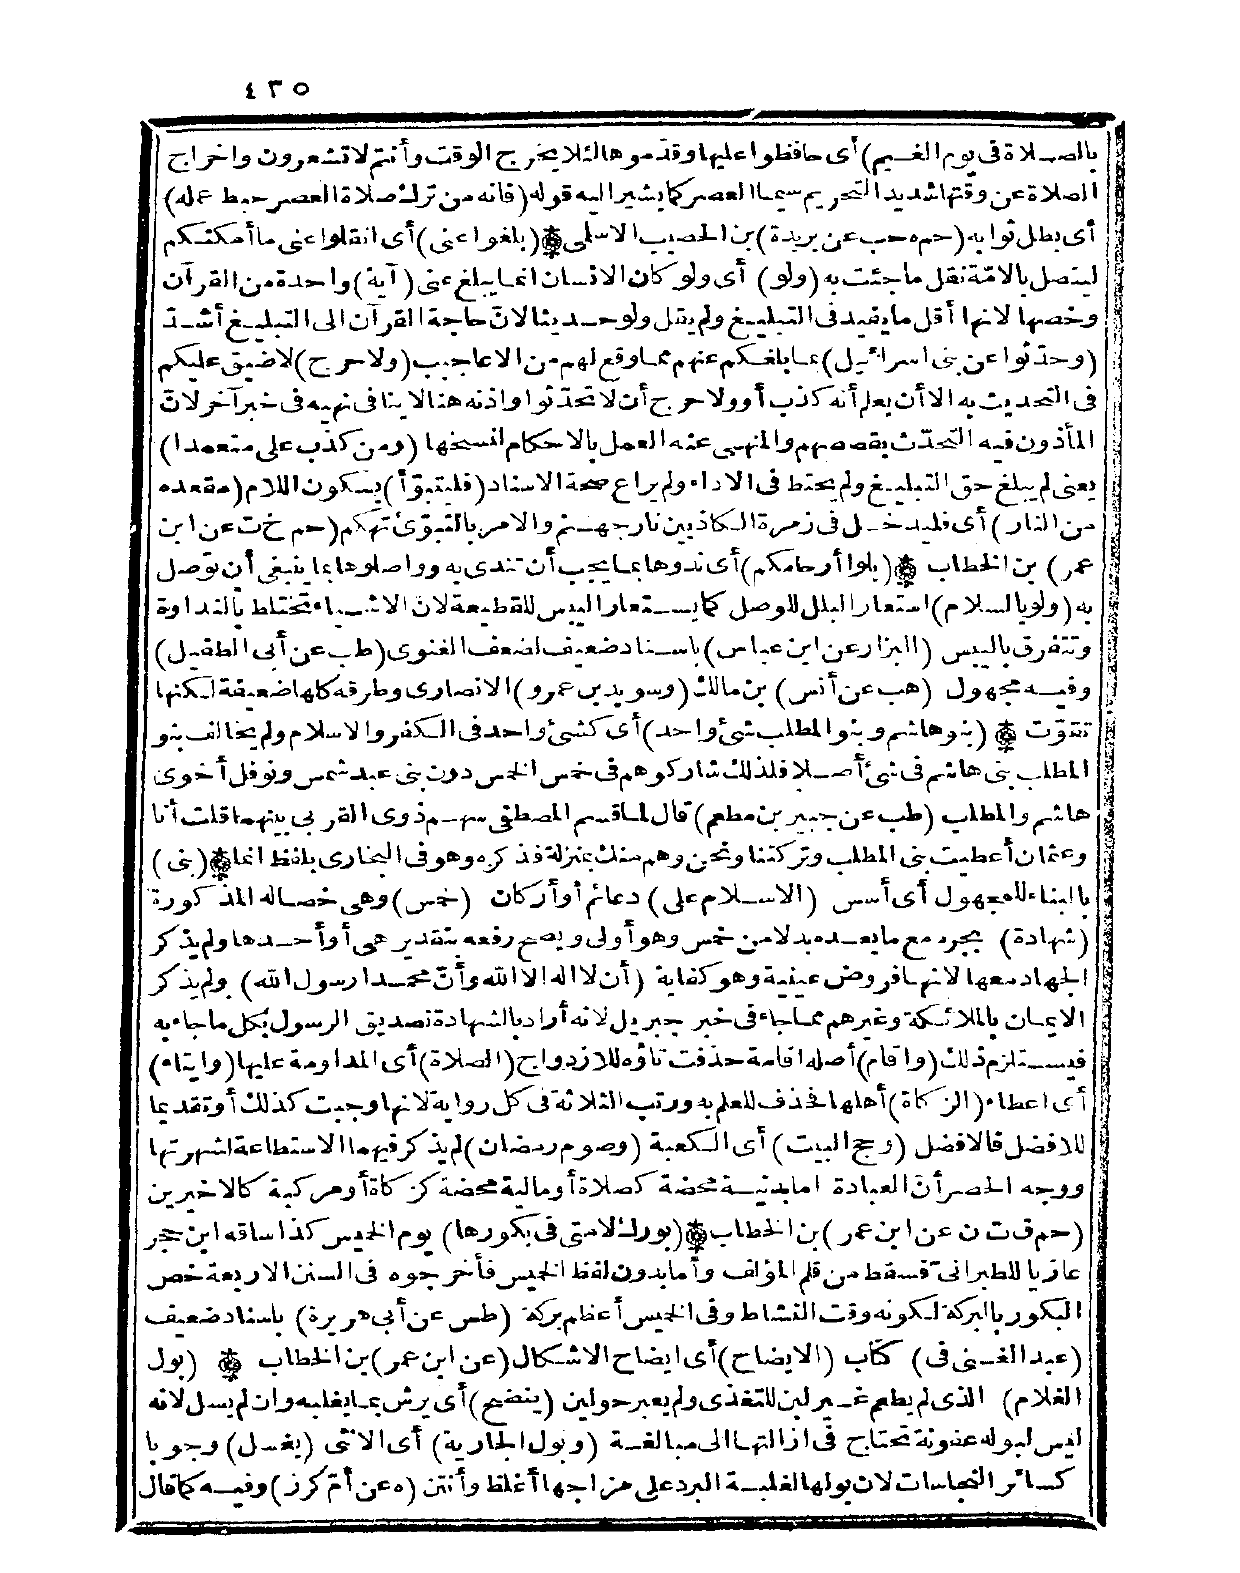 ٤٣٥
بالصلاة فى يوم الغيم) أى حافظوا عليها وقدّموها لئلا يخرج الوقت وأنتم لا تشعرون واخراج
الصلاة عن وقتها شديد التحريم سيما العصر كما يشير اليه قوله (فانه من ترك صلاة العصر حبط عمله)
أى بطل ثوابه (حم ه حب عن بريدة) بن الحصيب الاسلمى ۞ (بلغوا عنى) أى انقلوا عنى ما أمكنكم
ليتصل بالامّة نقل ما جئت به (ولو) أى ولو كان الانسان انما يبلغ عنى (آية) واحدة من القرآن
وخصها لانها أقل ما يفيد فى التبليغ ولم يقل ولو حديثا لانّ حاجة القرآن الى التبليغ أشدّ
(وحدّثوا عن بنى اسرائيل) بما بلغكم عنهم مما وقع لهم من الاعاجيب (ولا حرج) لا ضيق عليكم
فى التحديث به الا أن يعلم أنه كذب أو ولا حرج أن لا تحدّثوا واذنه هنا لا ينافى نهيه فى خبر آخر لانّ
المأذون فيه التحدّث بقصصهم والمنهى عنه العمل بالاحكام لنسخها (ومن كذب على متعمدا)
يعنى لم يبلغ حق التبليغ ولم يحتط فى الاداء ولم يراع صحة الاسناد (فليتبوّأ) بسكون اللام (مقعده
من النار) أى فليدخل فى زمرة الكاذبين نار جهنم والامر بالتبوّئ تهكم (حم خ ت عن ابن
عمر) بن الخطاب ۞ (بلوا أرحامكم) أى ندوها بما يجب أن تندى به وواصلوها بما ينبغى أن توصل
به (ولو بالسلام) استعار البلل للوصل كما يستعار اليبس للقطيعة لانّ الاشياء تختلط بالنداوة
وتتفرق باليبس (البزار عن ابن عباس) باسناد ضعيف لضعف الغنوى (طب عن أبى الطفيل)
وفيه مجهول (هب عن أنس) بن مالك (وسويد بن عمرو) الانصارى وطرقه كلها ضعيفة لكنها
تقوّت ۞ (بنو هاشم وبنو المطلب شئ واحد) أى كشئ واحد فى الكفر والاسلام ولم يخالف بنو
المطلب بنى هاشم فى شئ أصلا فلذلك شاركوهم فى خمس الخمس دون بنى عبد شمس ونوفل أخوى
هاشم والمطلب (طب عن جبير بن مطعم) قال لما قسم المصطفى سهم ذوى القربى بينهما قلت أنا
وعثمان أعطيت بنى المطلب وتركتنا ونحن وهم منك بمنزلة فذكره وهو فى البخارى بلفظ انما ۞ (بنى)
بالبناء للمجهول أى أسس (الاسلام على) دعائم أو أركان (خمس) وهى خصاله المذكورة
(شهادة) بجره مع ما بعده بدلا من خمس وهو أولى ويصح رفعه بتقدير هى أو أحدها ولم يذكر
الجهاد معها لانها فروض عينية وهو كفاية (أن لا اله الا الله وأنّ محمدا رسول الله) ولم يذكر
الايمان بالملائكة وغيرهم مما جاء فى خبر جبريل لانه أراد بالشهادة تصديق الرسول بكل ما جاء به
فيستلزم ذلك (واقام) أصله اقامة حذفت تاؤه للازدواج (الصلاة) أى المداومة عليها (وايتاء)
أى اعطاء (الزكاة) أهلها فحذف للعلم به ورتب الثلاثة فى كل رواية لانها وجبت كذلك أو تقديما
للافضل فالافضل (وحج البيت) أى الكعبة (وصوم رمضان) لم يذكر فيهما الاستطاعة لشهرتها
ووجه الحصر أنّ العبادة اما بدنية محضة كصلاة أو مالية محضة كزكاة أو مركبة كالاخيرين
(حم ق ت ن عن ابن عمر) بن الخطاب ۞ (بورك لامتى فى بكورها) يوم الخميس كذا ساقه ابن حجر
عازيا للطبرانى فسقط من قلم المؤلف وأما بدون لفظ الخميس فأخرجوه فى السنن الاربعة خص
البكور بالبركة لكونه وقت النشاط وفى الخميس أعظم بركة (طس عن أبى هريرة) باسناد ضعيف
(عبد الغنى فى) كتّاب (الايضاح) أى ايضاح الاشكال (عن ابن عمر) بن الخطاب ۞ (بول
الغلام) الذى لم يطعم غير لبن للتغذى ولم يعبر حولين (ينضح) أى يرش بما يغلبه وان لم يسل لانه
ليس لبوله عفونة تحتاج فى ازالتها الى مبالغة (وبول الجارية) أى الانثى (يغسل) وجوبا
كسائر النجاسات لان بولها لغلبة البرد على مزاجها أغلظ وأنتن (ه عن أمّ كرز) وفيه كما قال